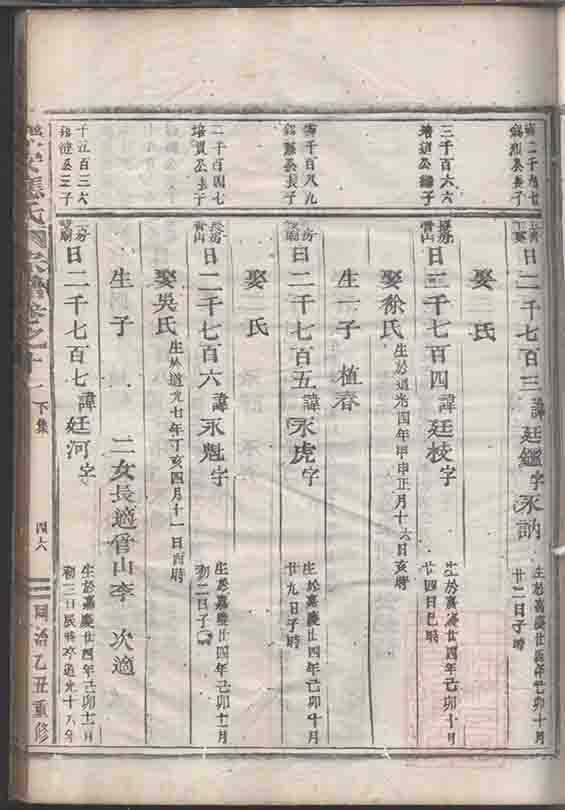 長房
日二千七百三諱廷鑑字永訥
生於嘉慶廿四年己卯十月
廿二日子時
娶 氏
三千百六六
長房
曹山
日二千七百四諱廷枝字
生於嘉慶廿四年己卯十月
廿四日巳時
娶徐氏
生於道光四年甲申正月十六日亥時
生一子 植春
日二千七百五諱永虎字
生於嘉慶廿四年己卯十月
廿九日子時
娶 氏
二千百四七
長房
曹山
日二千七百六諱永魁字
生於嘉慶廿四年己卯十一月
初二日子時
娶吳氏
生於道光七年丁亥四月十一日酉時
生 子 二女長適曹山李 次適
千五百三六
日二千七百七諱廷河字
生於嘉慶廿四年己卯十一月
初三日辰時卒道光十八年
下集
四六
同治乙丑重修